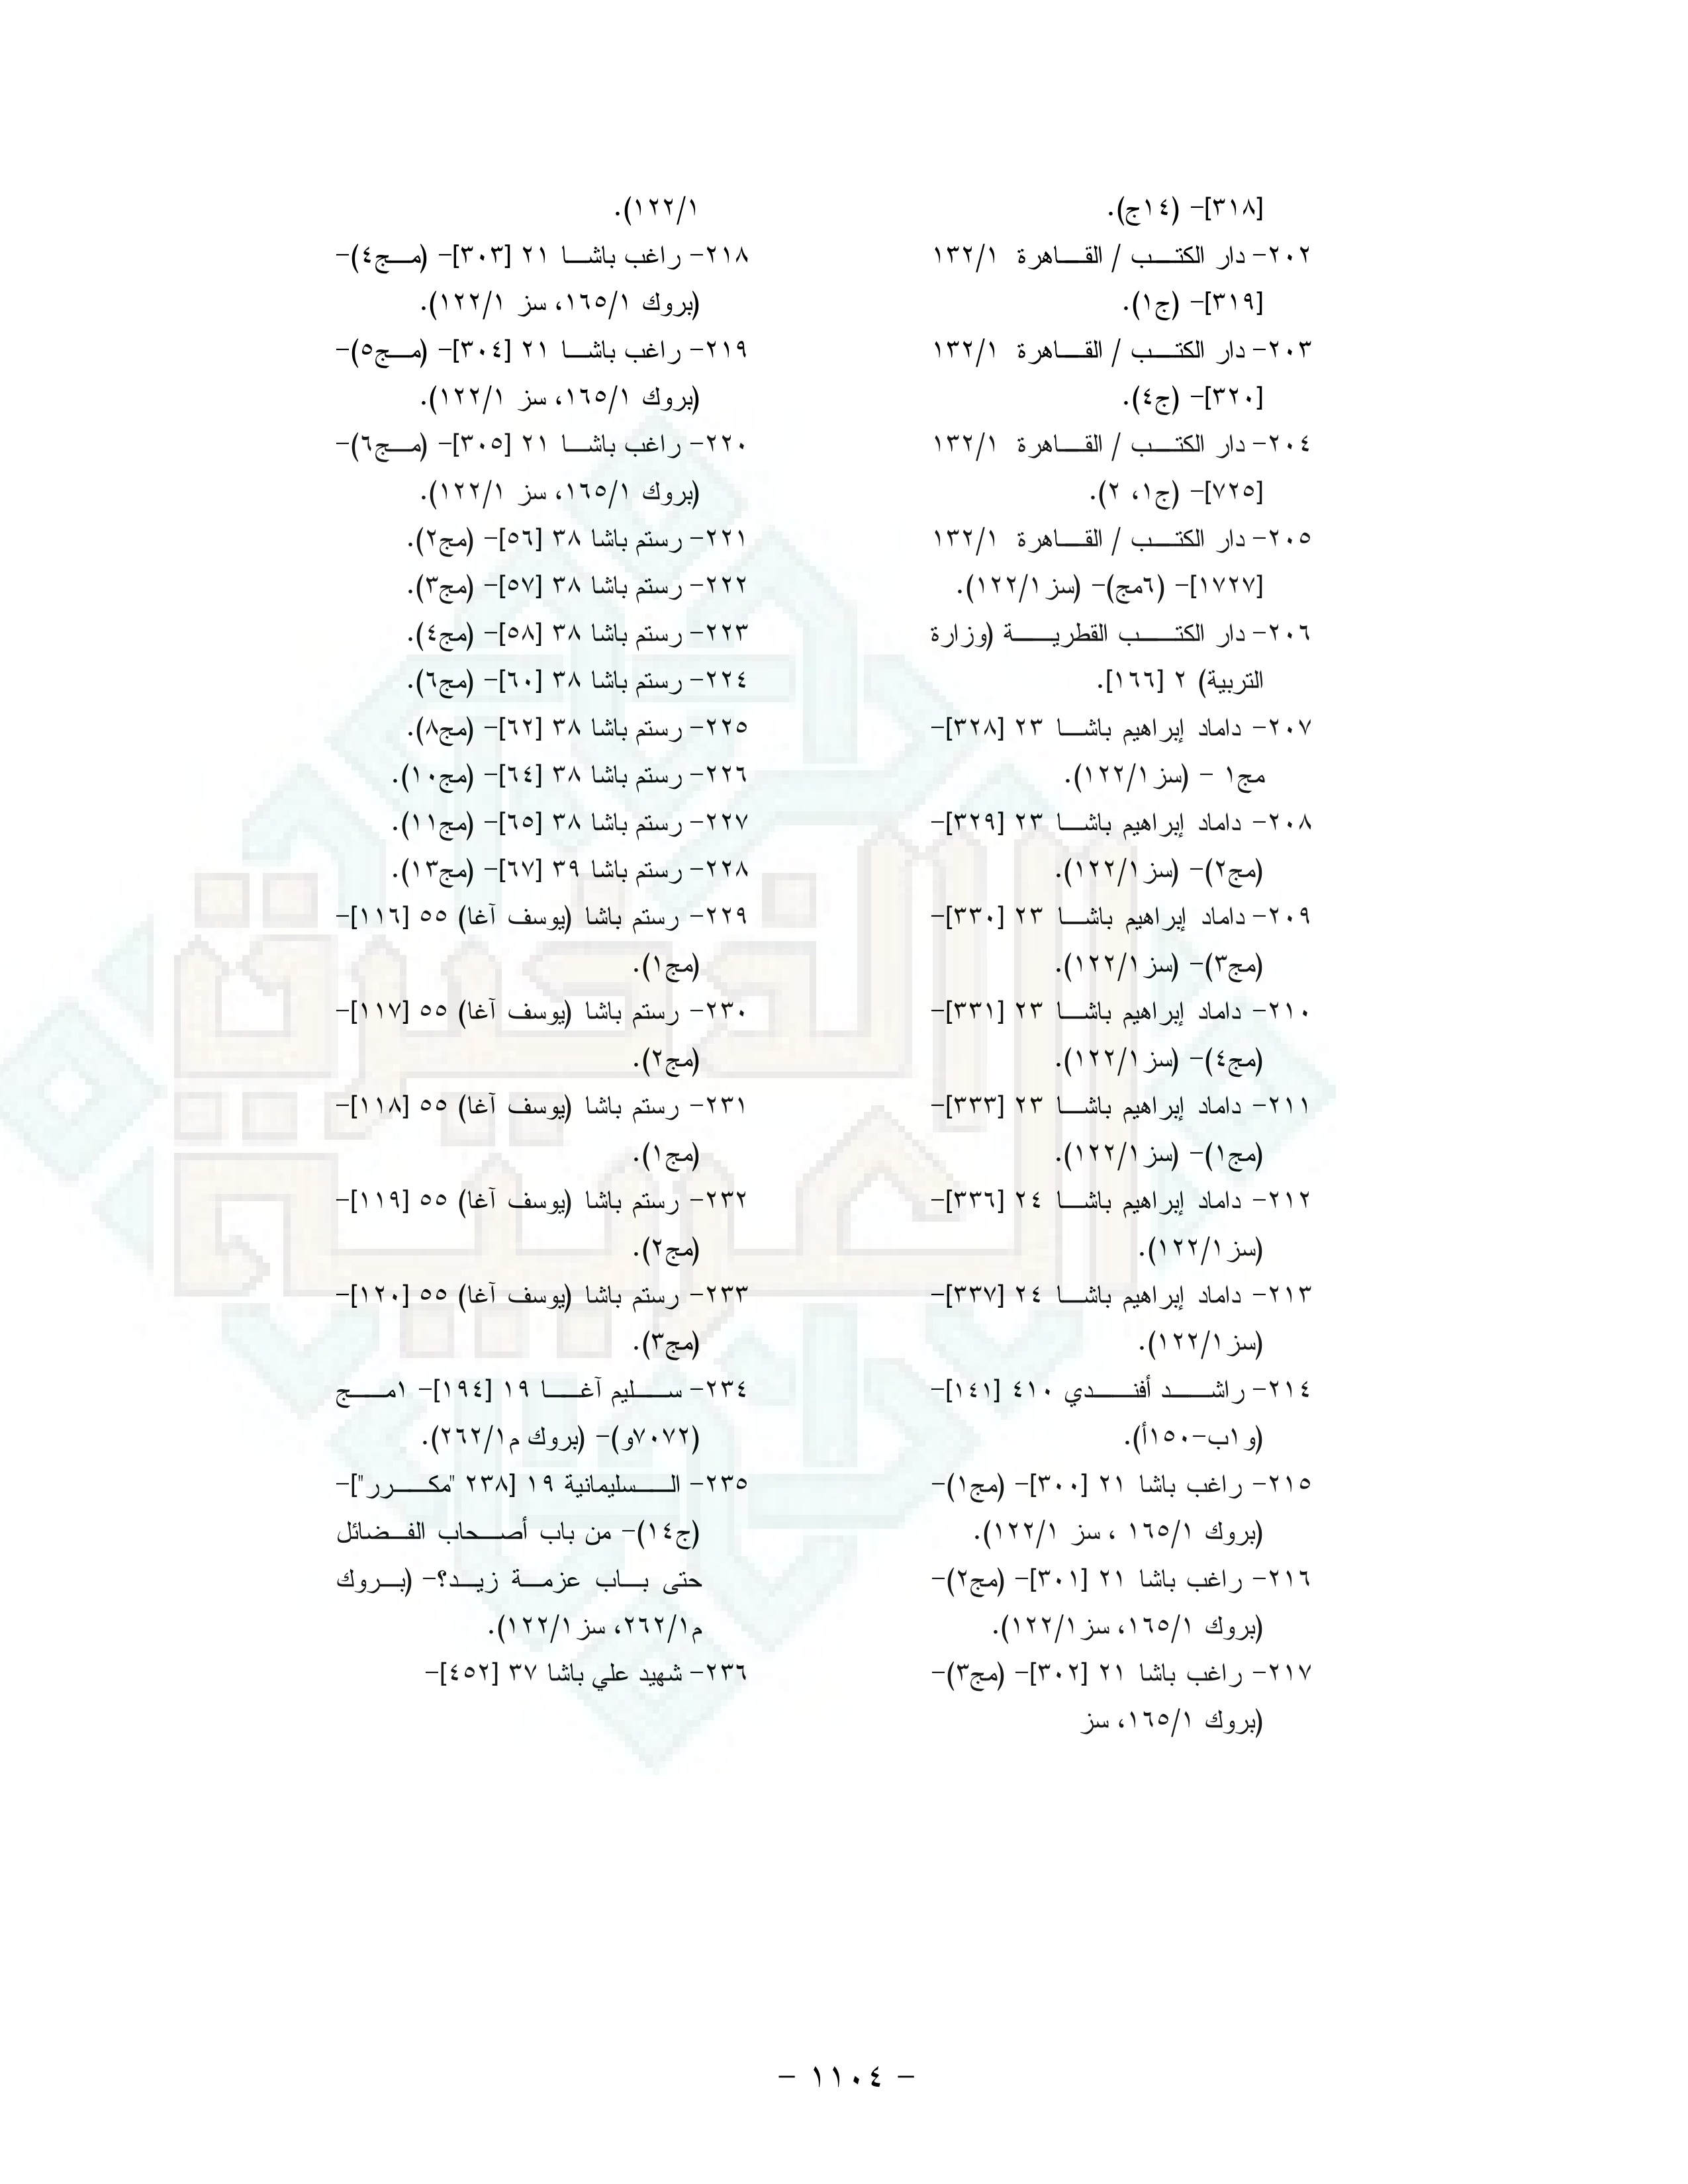 [٣١٨]- (١٤ج).
٢٠٢- دار الكتب / القاهرة ١٣٢/١
[٣١٩]- (ج١).
٢٠٣- دار الكتب / القاهرة ١٣٢/١
[٣٢٠]- (ج٤).
٢٠٤- دار الكتب / القاهرة ١٣٢/١
[٧٢٥]- (ج١، ٢).
٢٠٥- دار الكتب / القاهرة ١٣٢/١
[١٧٢٧]- (٦مج)- (سز١٢٢/١).
٢٠٦- دار الكتب القطرية (وزارة
التربية) ٢ [١٦٦].
٢٠٧- داماد إبراهيم باشا ٢٣ [٣٢٨]-
مج١ - (سز١٢٢/١).
٢٠٨- داماد إبراهيم باشا ٢٣ [٣٢٩]-
(مج٢)- (سز١٢٢/١).
٢٠٩- داماد إبراهيم باشا ٢٣ [٣٣٠]-
(مج٣)- (سز١٢٢/١).
٢١٠- داماد إبراهيم باشا ٢٣ [٣٣١]-
(مج٤)- (سز١٢٢/١).
٢١١- داماد إبراهيم باشا ٢٣ [٣٣٣]-
(مج١)- (سز١٢٢/١).
٢١٢- داماد إبراهيم باشا ٢٤ [٣٣٦]-
(سز١٢٢/١).
٢١٣- داماد إبراهيم باشا ٢٤ [٣٣٧]-
(سز١٢٢/١).
٢١٤- راشد أفندي ٤١٠ [١٤١]-
(و١ب-١٥٠أ).
٢١٥- راغب باشا ٢١ [٣٠٠]- (مج١)-
(بروك ١٦٥/١ ، سز ١٢٢/١).
٢١٦- راغب باشا ٢١ [٣٠١]- (مج٢)-
(بروك ١٦٥/١، سز١٢٢/١).
٢١٧- راغب باشا ٢١ [٣٠٢]- (مج٣)-
(بروك ١٦٥/١، سز
١٢٢/١).
٢١٨- راغب باشا ٢١ [٣٠٣]- (مج٤)-
(بروك ١٦٥/١، سز ١٢٢/١).
٢١٩- راغب باشا ٢١ [٣٠٤]- (مج٥)-
(بروك ١٦٥/١، سز ١٢٢/١).
٢٢٠- راغب باشا ٢١ [٣٠٥]- (مج٦)-
(بروك ١٦٥/١، سز ١٢٢/١).
٢٢١- رستم باشا ٣٨ [٥٦]- (مج٢).
٢٢٢- رستم باشا ٣٨ [٥٧]- (مج٣).
٢٢٣- رستم باشا ٣٨ [٥٨]- (مج٤).
٢٢٤- رستم باشا ٣٨ [٦٠]- (مج٦).
٢٢٥- رستم باشا ٣٨ [٦٢]- (مج٨).
٢٢٦- رستم باشا ٣٨ [٦٤]- (مج١٠).
٢٢٧- رستم باشا ٣٨ [٦٥]- (مج١١).
٢٢٨- رستم باشا ٣٩ [٦٧]- (مج١٣).
٢٢٩- رستم باشا (يوسف آغا) ٥٥ [١١٦]-
(مج١).
٢٣٠- رستم باشا (يوسف آغا) ٥٥ [١١٧]-
(مج٢).
٢٣١- رستم باشا (يوسف آغا) ٥٥ [١١٨]-
(مج١).
٢٣٢- رستم باشا (يوسف آغا) ٥٥ [١١٩]-
(مج٢).
٢٣٣- رستم باشا (يوسف آغا) ٥٥ [١٢٠]-
(مج٣).
٢٣٤- سليم آغا ١٩ [١٩٤]- ١مج
(٧٠٧٢و)- (بروك م٢٦٢/١).
٢٣٥- السليمانية ١٩ [٢٣٨ "مكرر"]-
(ج١٤)- من باب أصحاب الفضائل
حتى باب عزمة زيد؟- (بروك
م٢٦٢/١، سز١٢٢/١).
٢٣٦- شهيد علي باشا ٣٧ [٤٥٢]-
الذخيرة
العربية
- ١١٠٤ -